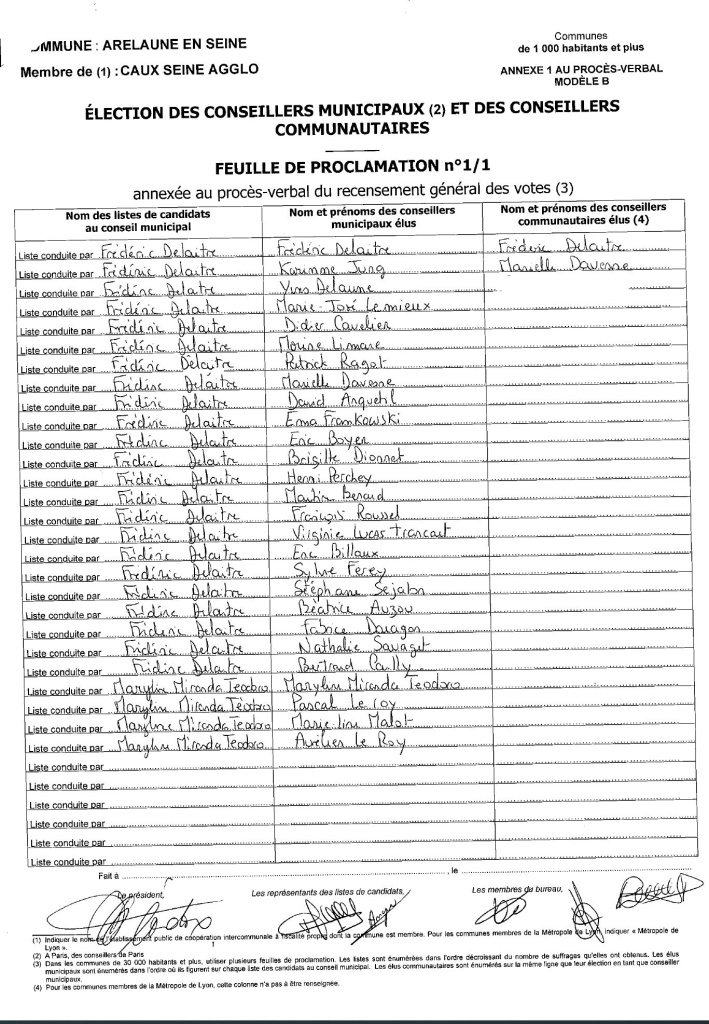 MMUNE : ARELAUNE EN SEINE
Membre de (1) : CAUX SEINE AGGLO
Communes
de 1 000 habitants et plus
ANNEXE 1 AU PROCÈS-VERBAL
MODÈLE B
ÉLECTION DES CONSEILLERS MUNICIPAUX (2) ET DES CONSEILLERS
COMMUNAUTAIRES
FEUILLE DE PROCLAMATION n°1/1
annexée au procès-verbal du recensement général des votes (3)
Nom des listes de candidats au conseil municipal | Nom et prénoms des conseillers municipaux élus | Nom et prénoms des conseillers communautaires élus (4)
Liste conduite par Frédéric Delaitre Frédéric Delaitre Frédéric Delaitre
Liste conduite par Frédéric Delaitre Karinne Jung Marielle Davenne
Liste conduite par Frédéric Delaitre Yves Delaune
Liste conduite par Frédéric Delaitre Marie-José Lemieux
Liste conduite par Frédéric Delaitre Didier Cavelier
Liste conduite par Frédéric Delaitre Limare
Liste conduite par Frédéric Delaitre Patrick Ragot
Liste conduite par Frédéric Delaitre Marielle Davenne
Liste conduite par Frédéric Delaitre David Anquetil
Liste conduite par Frédéric Delaitre Erma Framkowski
Liste conduite par Frédéric Delaitre Eric Boyer
Liste conduite par Frédéric Delaitre Brigitte Dionnet
Liste conduite par Frédéric Delaitre Henri Perchey
Liste conduite par Frédéric Delaitre Martin Benard
Liste conduite par Frédéric Delaitre François Roussel
Liste conduite par Frédéric Delaitre Virginie Lucas Trancart
Liste conduite par Frédéric Delaitre Eric Billaux
Liste conduite par Frédéric Delaitre Sylvie Ferey
Liste conduite par Frédéric Delaitre Stéphane Sejabn
Liste conduite par Frédéric Delaitre Béatrice Auzou
Liste conduite par Frédéric Delaitre Fabrice Douagon
Liste conduite par Frédéric Delaitre Nathalie Sauvaget
Liste conduite par Frédéric Delaitre Bertrand Pailly
Liste conduite par Maryline Miranda Teodoro Maryline Miranda Teodoro
Liste conduite par Maryline Miranda Teodoro Pascal Le roy
Liste conduite par Maryline Miranda Teodoro Marie-line Malot
Liste conduite par Maryline Miranda Teodoro Aurélien Le Roy
Liste conduite par
Liste conduite par
Liste conduite par
Liste conduite par
Liste conduite par
Liste conduite par
Fait à , le
Le président,
Les représentants des listes de candidats,
Les membres du bureau,
(1) Indiquer le nom de l'établissement public de coopération intercommunale à fiscalité propre dont la commune est membre. Pour les communes membres de la Métropole de Lyon, indiquer « Métropole de
Lyon ».
(2) A Paris, des conseillers de Paris
(3) Dans les communes de 30 000 habitants et plus, utiliser plusieurs feuilles de proclamation. Les listes sont énumérées dans l'ordre décroissant du nombre de suffrages qu'elles ont obtenus. Les élus
municipaux sont énumérés dans l'ordre où ils figurent sur chaque liste des candidats au conseil municipal. Les élus communautaires sont énumérés sur la même ligne que leur élection en tant que conseiller
municipaux.
(4) Pour les communes membres de la Métropole de Lyon, cette colonne n'a pas à être renseignée.